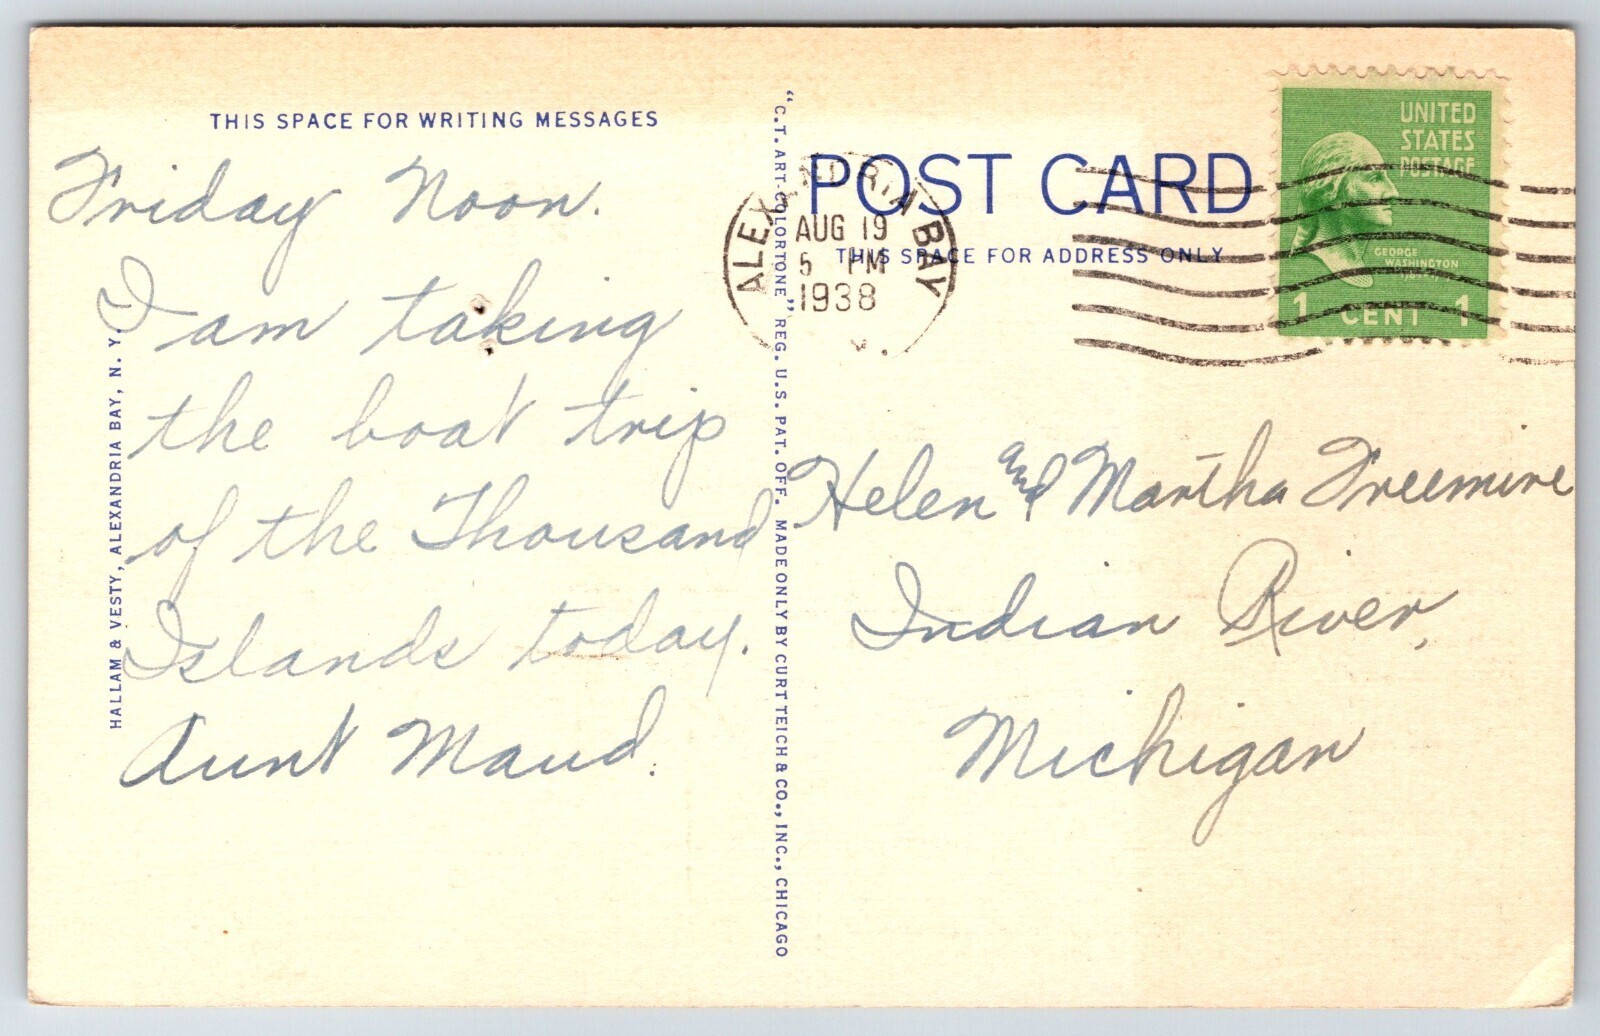 THIS SPACE FOR WRITING MESSAGES
Friday Noon.
I am taking
the boat trip
of the Thousand
Islands today.
Aunt Maud.
HALLAM & VESTY, ALEXANDRIA BAY, N. Y.
"C.T. ART-COLORTONE" REG. U.S. PAT. OFF. MADE ONLY BY CURT TEICH & CO., INC., CHICAGO
POST CARD
THIS SPACE FOR ADDRESS ONLY
ALEXANDRIA BAY
AUG 19
5 PM
1938
UNITED
STATES
POSTAGE
GEORGE
WASHINGTON
1 CENT 1
Helen and Martha Freemire
Indian River,
Michigan